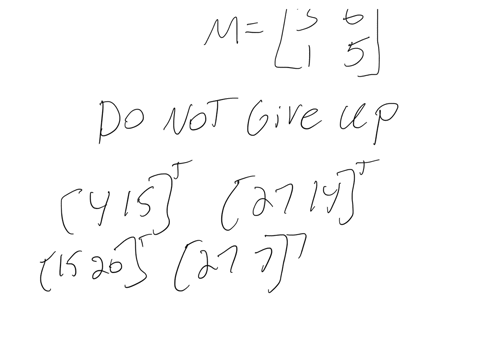 6
M = [1 5]
DO NOT Give up
[4 15]ᵀ [27 14]ᵀ
[15 20]ᵀ [27 7]ᵀ